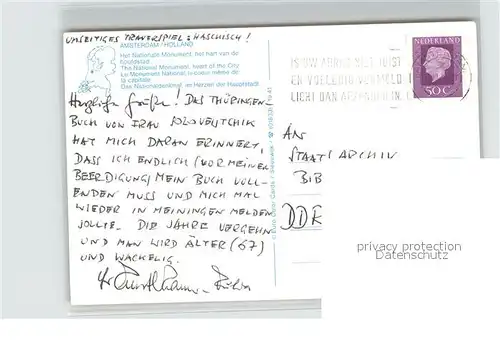 UMSEITIGES TRAUERSPIEL: HASCHISCH!
AMSTERDAM / HOLLAND
Het Nationale Monument, het hart van de
hoofdstad
The National Monument, heart of the City
Le Monument National, le coeur même de
la capitale
Das Nationaldenkmal, im Herzen der Hauptstadt
Herzliche Grüße! DAS THÜRINGEN-
BUCH VON FRAU
HAT MICH DARAN ERINNERT,
DASS ICH ENDLICH (VOR MEINER
BEERDIGUNG) MEIN BUCH VOLL-
ENDEN MUSS UND MICH MAL
WIEDER IN MEININGEN MELDEN
SOLLTE. DIE JAHRE VERGEHN
UND MAN WIRD ÄLTER (67)
UND WACKELIG.
Ihr
© Euro Color Cards / Sleeswijk
NEDERLAND
50C
IS UW ADRES NIET JUIST
EN VOLLEDIG VERMELD
LICHT DAN AFZENDER IN.
AN
STAATSARCHIV
BIB
DDR
privacy protection
Datenschutz